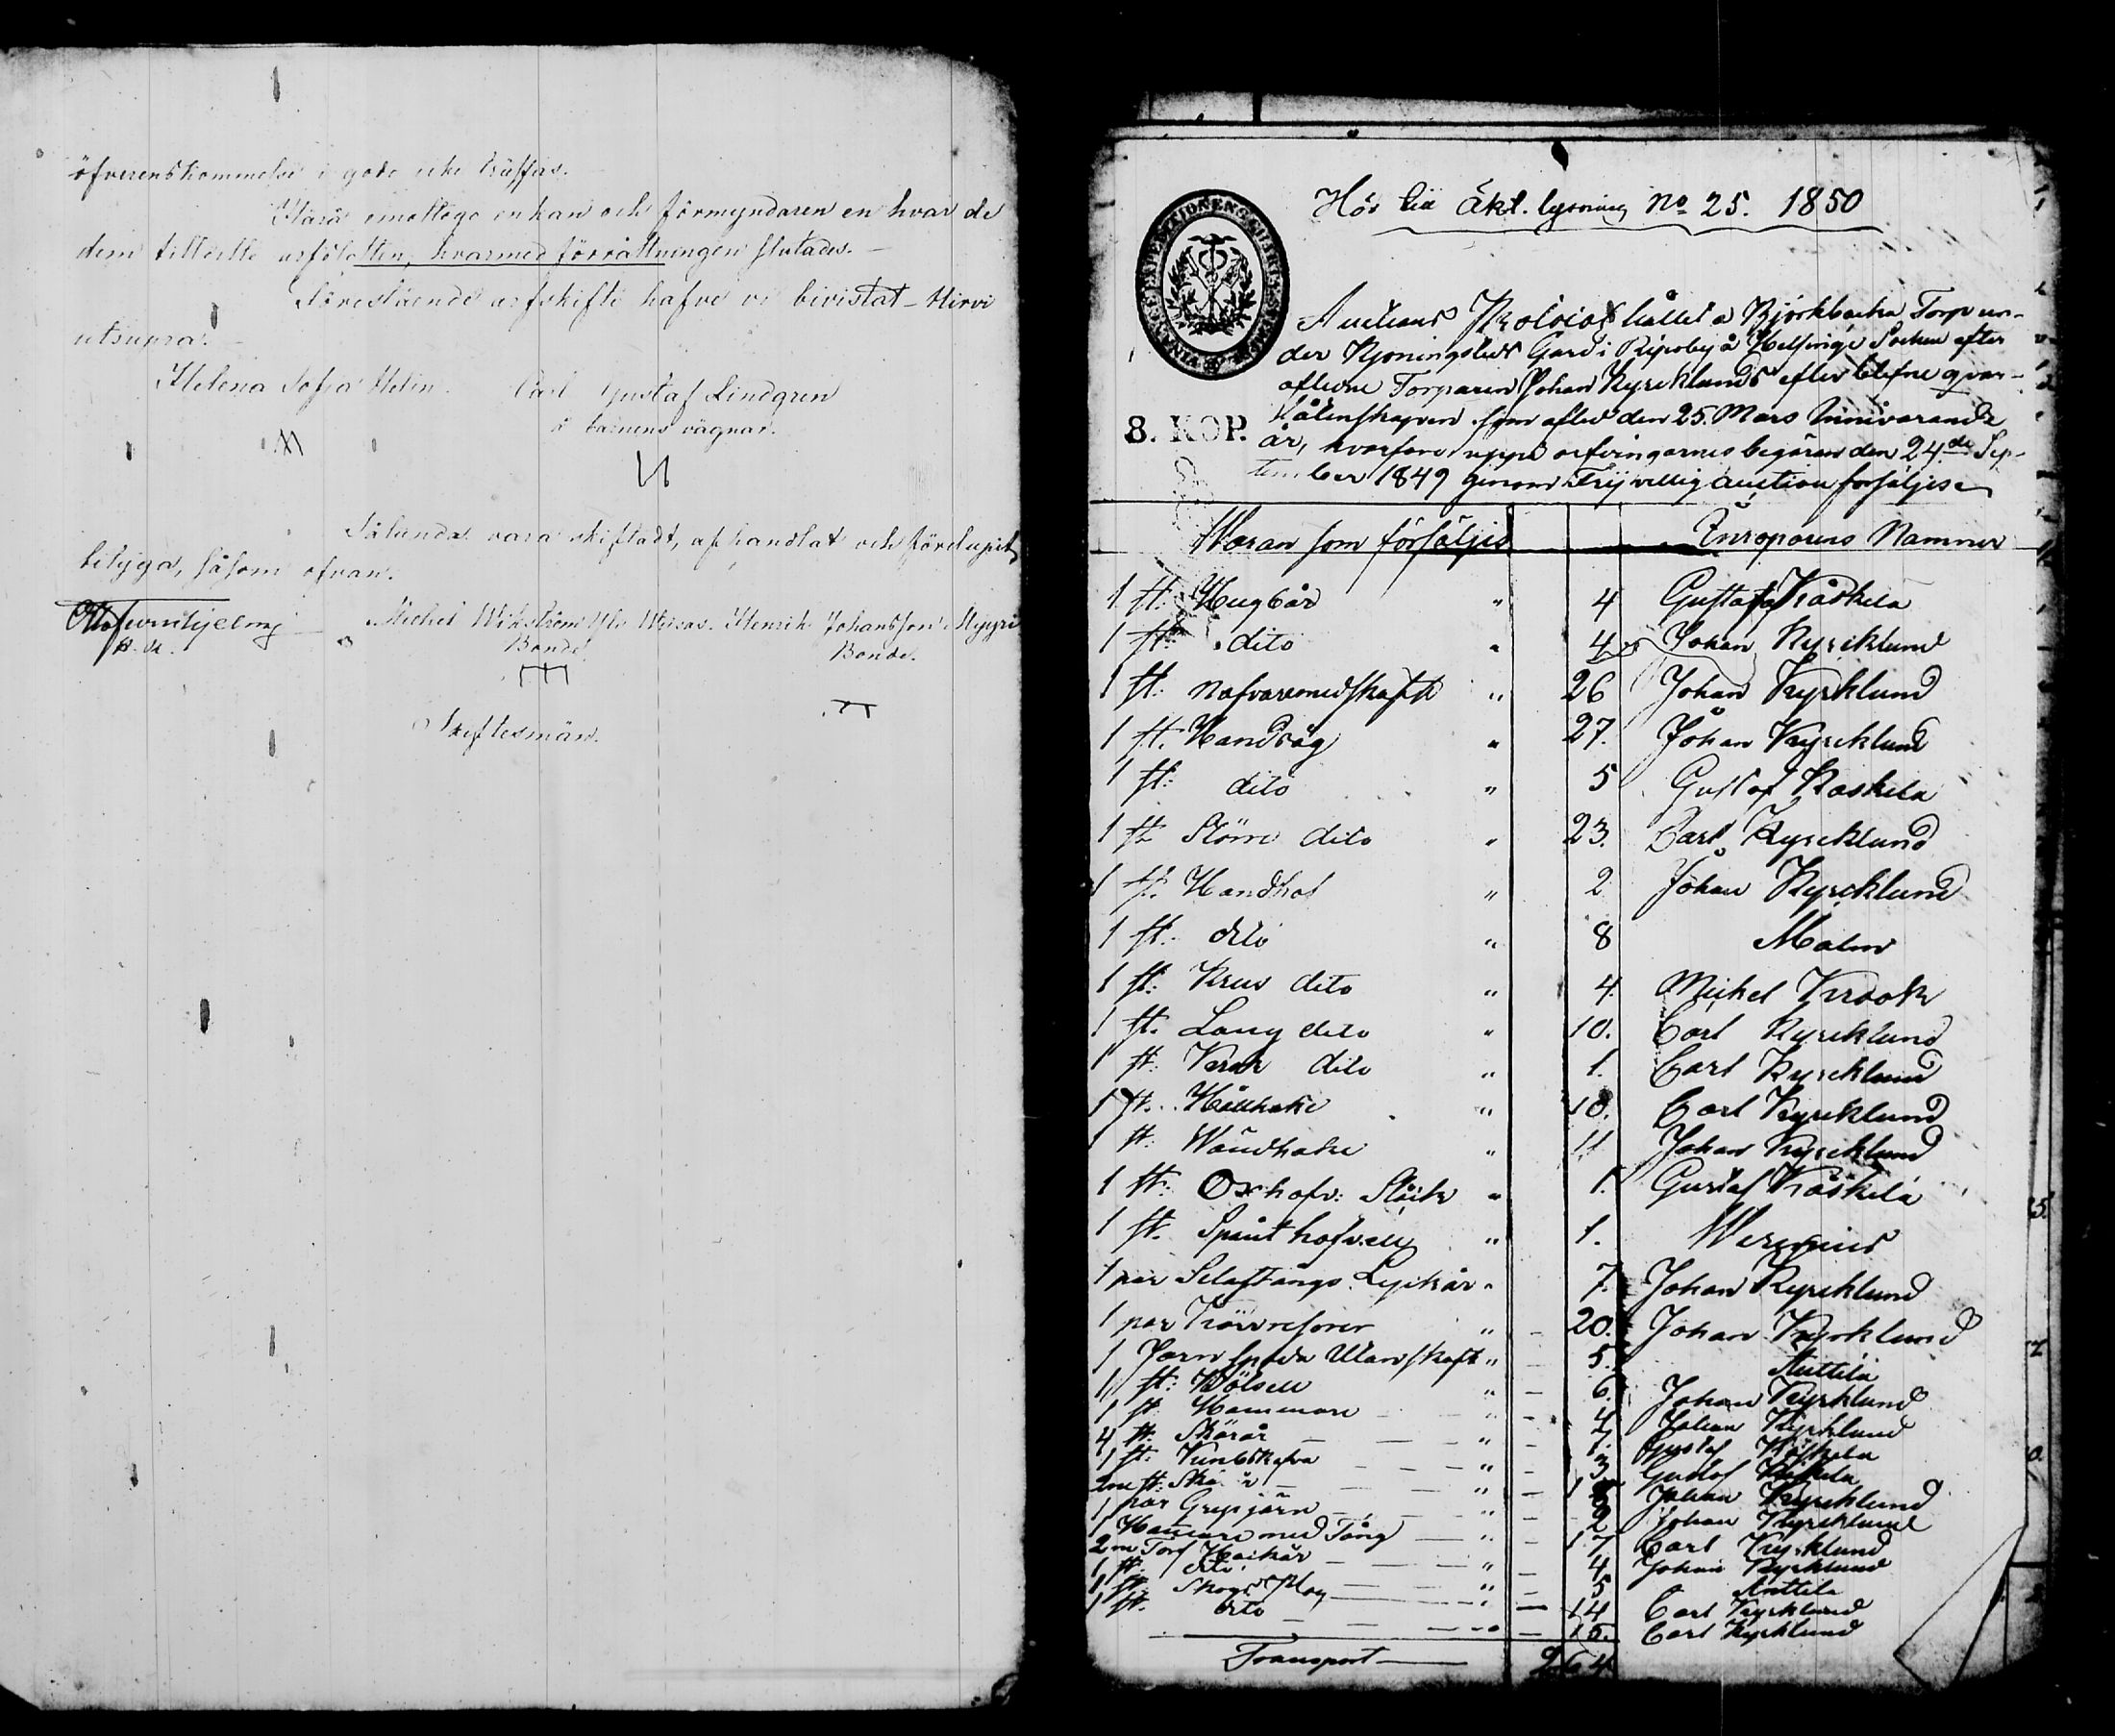 öfverenskommelse i godo icke träffas.
Härå emottogo enkan och förmyndaren en hvar de
dem tilldelte arfslotten, hvarmed förrättningen slutades.
Förestående arfskifte hafve vi bivistat - Hirvi
utsupra.
Helena Sofia Helin. Carl Gustaf Lindgren
å barnens vägnar.
Sålunda vara skiftadt, afhandlat och förelupit,
betyga, såsom ofvan.
Michel Wikström Henrik Johansson Myyri
Bonde. Bonde.
Skiftesmän.
Hör till Äkt. lysning No 25. 1850
8. KOP.
Auctions Protocol hållet å Björkbacka Torp un-
der Kjoningstedt Gård i Ripsby å Helsinge Socken efter
aflidne Torparen Johan Kyrcklunds efterblefne qvar-
låtenskapen som afled den 25. Mars innevarande
år, hvarföre uppå arfvingarnes begäran den 24de Sep-
tember 1849 genom Frijvillig Auction försäljes
Waran som försäljes Inroparens Namner
1 st: Hugbår " 4 Gustaf Kaskela
1 st: dito " 4 Johan Kyrcklund
1 st: Nafvare med skaft " 26 Johan Kyrklund
1 st. Handsåg " 27. Johan Kyrcklund
1 st: dito " 5 Gustaf Kaskela
1 st Större dito " 23. Carl Kyrcklund
1 st. Handhof " 2 Johan Kyrcklund
1 st. dito " 8 Malm
1 st: Krus dito " 4. Michel Krook
1 st. Lång dito " 10. Carl Kyrcklund
1 st: Krok dito " 1. Carl Kyrcklund
1 st. Hållhake " 18. Carl Kyrcklund
1 st: Wändhake " 11 Johan Kyrcklund
1 st: Oxhofv: " 1. Gustaf Kaskela
1 st. Spånt hofvell " 1.
1 par " 7. Johan Kyrcklund
1 par " 20. Johan Kyrcklund
1 Jernspada Utan skaft " 5. Anttila
1 st: " 6. Johan Kyrklund
1 st Hammare " 4 Johan Kyrklund
4 st. Skäror " 1. Gustaf Kaskela
1 st. " 3 Gustaf Kaskela
2ne st: " Johan Kyrcklund
1 par Grepjärn " 2 Johan Kyrcklund
1 Hammare med Tång " 17 Carl Kyrklund
2ne Torf Hackår " 4 Johan Kyrklund
1 st. dito " 5 Anttila
1 st. Skogs Plog " 14 Carl Kyrklund
1 st. dito " 15. Carl Kyrklund
Transport 264